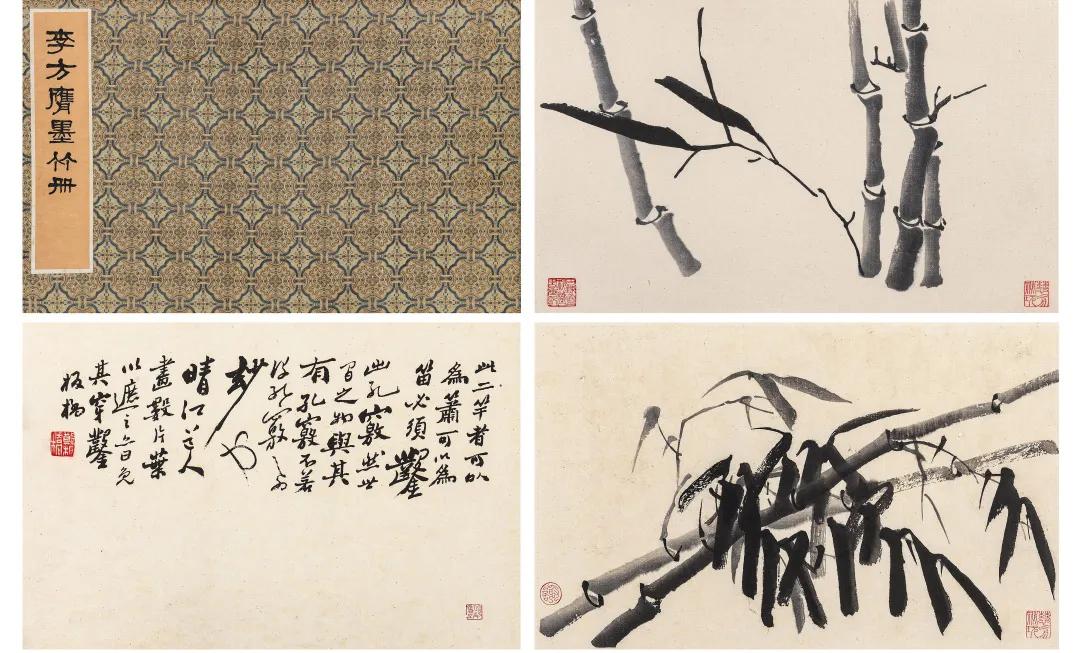 李方膺墨竹冊
此二竿者可以
為簫可以為
笛必須鑿
出孔竅然世
間之物與其
有孔竅不若
沒孔竅之為
妙也
晴江道人
畫數片葉
以遮之亦曰免
其穿鑿
板橋